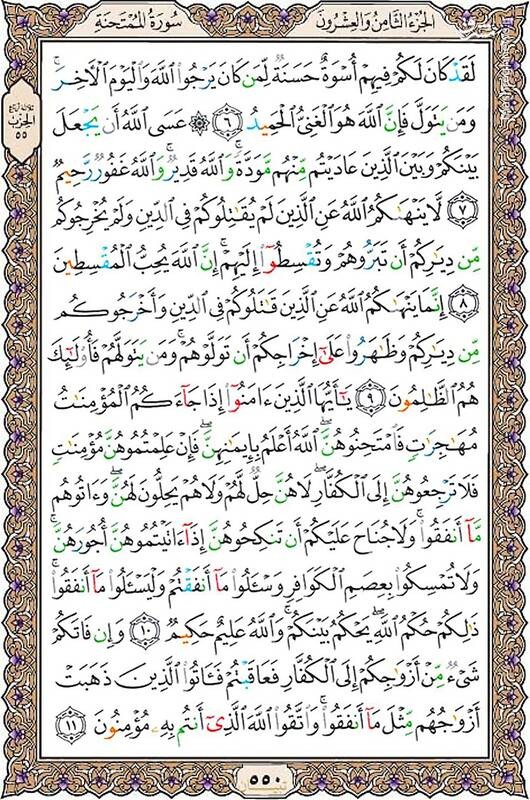 الجُزْءُ الثَّامِنُ وَالعِشْرُونَ
سُورَةُ المُمْتَحَنَةِ
لَقَدْ كَانَ لَكُمْ فِيهِمْ أُسْوَةٌ حَسَنَةٌ لِّمَن كَانَ يَرْجُوا۟ ٱللَّهَ وَٱلْيَوْمَ ٱلْـَٔاخِرَ ۚ
وَمَن يَتَوَلَّ فَإِنَّ ٱللَّهَ هُوَ ٱلْغَنِىُّ ٱلْحَمِيدُ ٦ ۞ عَسَى ٱللَّهُ أَن يَجْعَلَ
بَيْنَكُمْ وَبَيْنَ ٱلَّذِينَ عَادَيْتُم مِّنْهُم مَّوَدَّةً ۚ وَٱللَّهُ قَدِيرٌ ۚ وَٱللَّهُ غَفُورٌ رَّحِيمٌ
٧ لَّا يَنْهَىٰكُمُ ٱللَّهُ عَنِ ٱلَّذِينَ لَمْ يُقَـٰتِلُوكُمْ فِى ٱلدِّينِ وَلَمْ يُخْرِجُوكُم
مِّن دِيَـٰرِكُمْ أَن تَبَرُّوهُمْ وَتُقْسِطُوٓا۟ إِلَيْهِمْ ۚ إِنَّ ٱللَّهَ يُحِبُّ ٱلْمُقْسِطِينَ
٨ إِنَّمَا يَنْهَىٰكُمُ ٱللَّهُ عَنِ ٱلَّذِينَ قَـٰتَلُوكُمْ فِى ٱلدِّينِ وَأَخْرَجُوكُم
مِّن دِيَـٰرِكُمْ وَظَـٰهَرُوا۟ عَلَىٰٓ إِخْرَاجِكُمْ أَن تَوَلَّوْهُمْ ۚ وَمَن يَتَوَلَّهُمْ فَأُو۟لَـٰٓئِكَ
هُمُ ٱلظَّـٰلِمُونَ ٩ يَـٰٓأَيُّهَا ٱلَّذِينَ ءَامَنُوٓا۟ إِذَا جَآءَكُمُ ٱلْمُؤْمِنَـٰتُ
مُهَـٰجِرَٰتٍ فَٱمْتَحِنُوهُنَّ ۖ ٱللَّهُ أَعْلَمُ بِإِيمَـٰنِهِنَّ ۖ فَإِنْ عَلِمْتُمُوهُنَّ مُؤْمِنَـٰتٍ
فَلَا تَرْجِعُوهُنَّ إِلَى ٱلْكُفَّارِ ۖ لَا هُنَّ حِلٌّ لَّهُمْ وَلَا هُمْ يَحِلُّونَ لَهُنَّ ۖ وَءَاتُوهُم
مَّآ أَنفَقُوا۟ ۚ وَلَا جُنَاحَ عَلَيْكُمْ أَن تَنكِحُوهُنَّ إِذَآ ءَاتَيْتُمُوهُنَّ أُجُورَهُنَّ ۚ
وَلَا تُمْسِكُوا۟ بِعِصَمِ ٱلْكَوَافِرِ وَسْـَٔلُوا۟ مَآ أَنفَقْتُمْ وَلْيَسْـَٔلُوا۟ مَآ أَنفَقُوا۟ ۚ
ذَٰلِكُمْ حُكْمُ ٱللَّهِ ۖ يَحْكُمُ بَيْنَكُمْ ۚ وَٱللَّهُ عَلِيمٌ حَكِيمٌ ١٠ وَإِن فَاتَكُمْ
شَىْءٌ مِّنْ أَزْوَٰجِكُمْ إِلَى ٱلْكُفَّارِ فَعَاقَبْتُمْ فَـَٔاتُوا۟ ٱلَّذِينَ ذَهَبَتْ
أَزْوَٰجُهُم مِّثْلَ مَآ أَنفَقُوا۟ ۚ وَٱتَّقُوا۟ ٱللَّهَ ٱلَّذِىٓ أَنتُم بِهِۦ مُؤْمِنُونَ ١١
ثلاثة أرباع
الحزب
٥٥
٥٥٠
تبيان